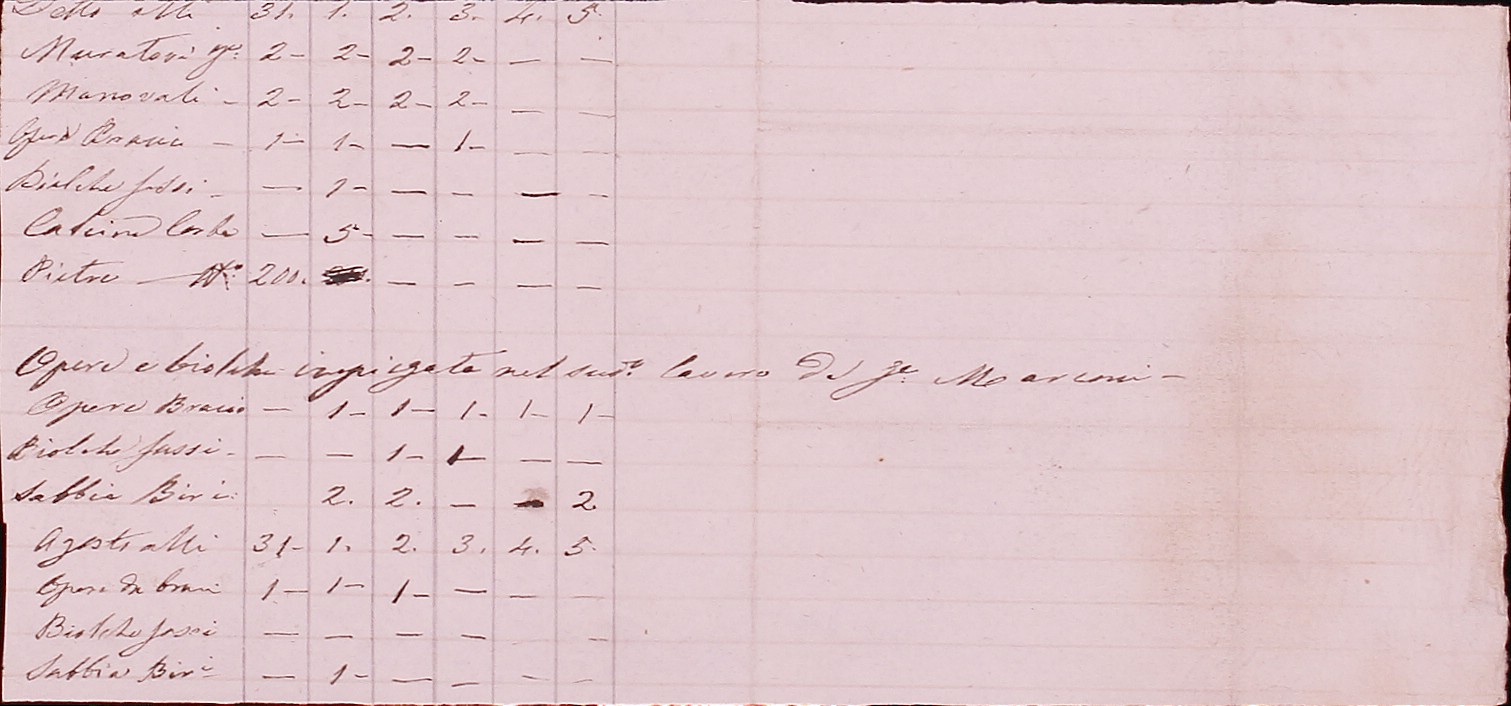 Detto alli 31. 1. 2. 3. 4. 5.
Muratori 2- 2- 2- 2- — —
Manovali - 2- 2- 2- 2- — —
Opere Bracci - 1- 1- — 1- — —
Biolche fossi - — 1- — — — —
Calcina Corbe — 5- — — — —
Pietre — N.° 200. — — — —
Opere e biolche impiegate nel sud.° lavoro Marconi -
Opere Bracci — 1- 1- 1- 1- 1-
Biolche fossi - — — 1- 1- — —
Sabbia Biri: 2. 2. — — 2.
Agosto alli 31- 1. 2. 3. 4. 5.
Opere da bracci 1- 1- 1- — — —
Biolche fossi — — — — —
Sabbia Biri — 1- — — — —